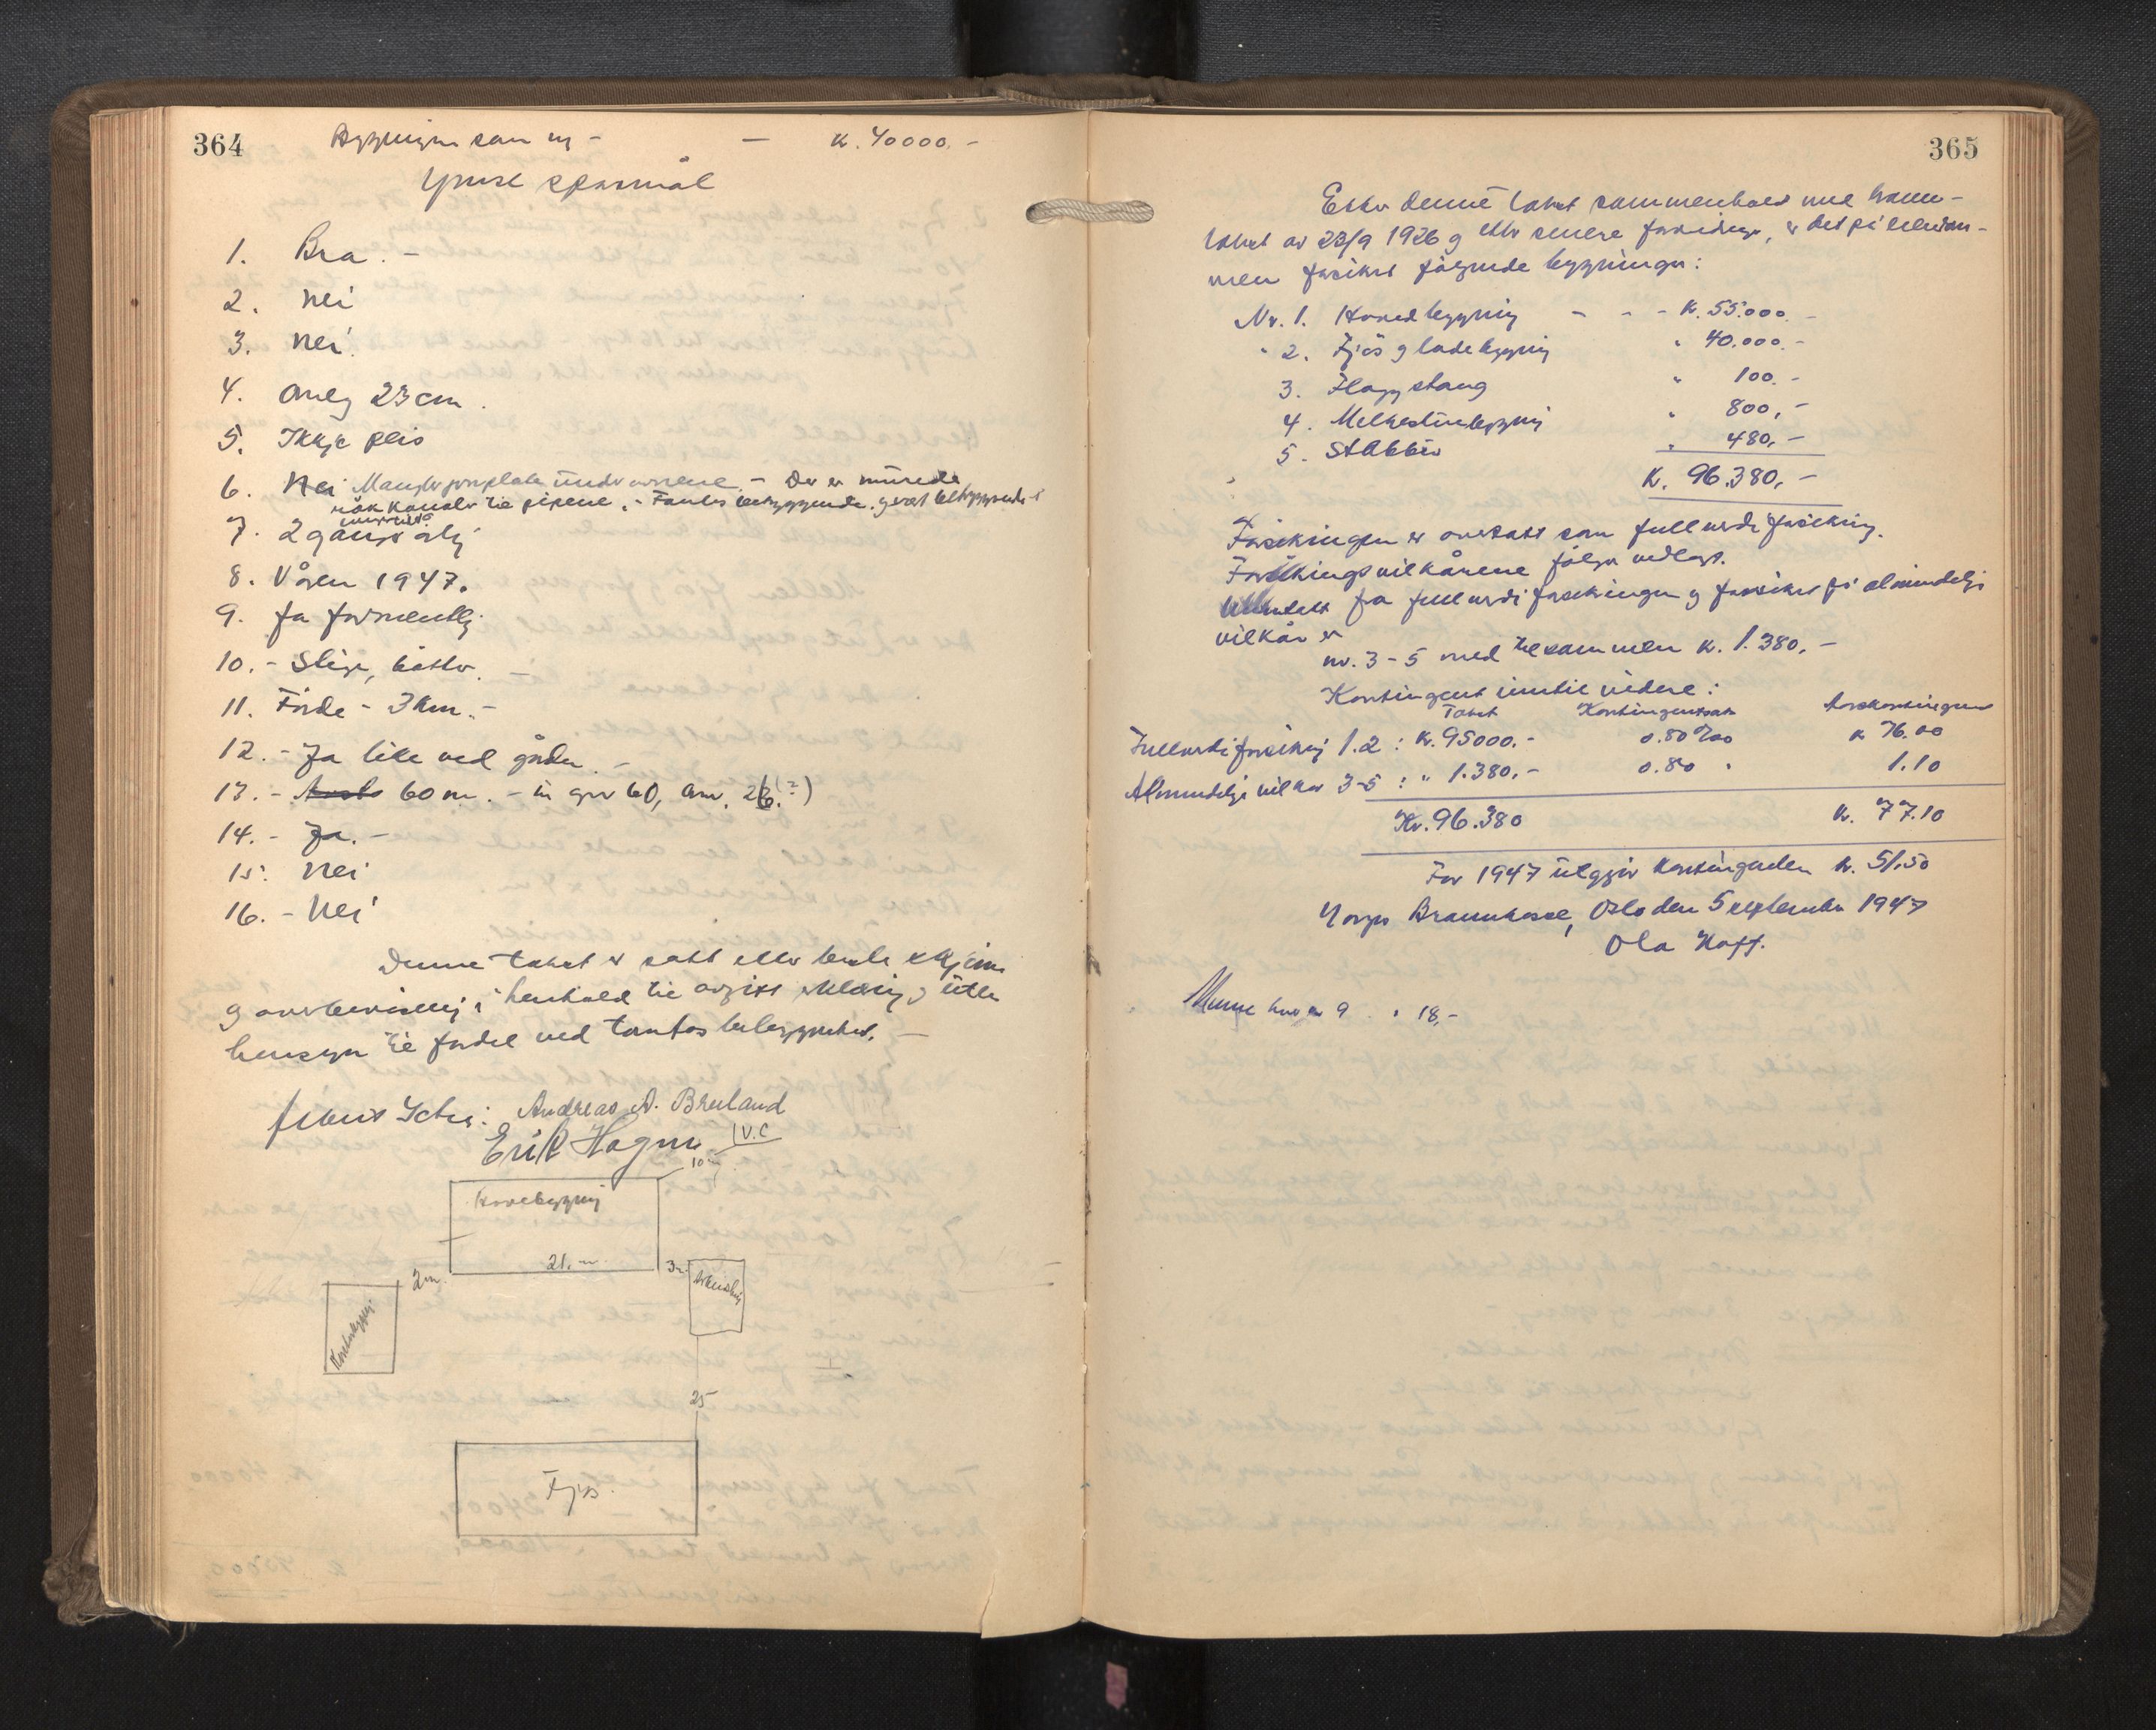 364
Bygningen som ny - - K. 40000.-
Ymse spørsmål
1. Bra. -
2. Nei
3. Nei.
4. Omlag 23 cm.
5. Ikkje peis
6. Nei Mangler jernplate under ovnene. - Der er murede
røkkanaler til pipene. - Tantes bebyggende.
7. 2 gangar årleg
8. Våren 1947.
9. Ja formentleg
10. - Stige, bøtter. -
11. Førde - 3 km. -
12. - Ja like ved garden. -
13. - 60 m. - 60, 26.(?)
14. - Ja. -
15. Nei
16. - Nei
Denne takst er satt etter beste skjøn
og overbevisning i henhold til avgitt erklæring og uten
hensyn til fordel ved tomtas beliggenhet. -
Andreas A. Bruland
Erik Hagen
W.C
10 m
Hovebygning
21. m
2 m.
3 m.
25
Fjøs
365
Etter denne takst sammenholdt med brann-
takst av 23/9 1926 og etter senere forandringer, er det på eiendom-
men forsikret følgende bygninger:
Nr. 1. Hovedbygning - - - K. 55.000.-
" 2. Fjøs og ladebygning " 40.000.-
3. Flaggstang " 100.-
4. Melkestinebygning " 800,-
5. Stabbur " 480,-
K. 96.380,-
Forsikringen er overtatt som fullverdiforsikring.
Forsikringsvilkårene følger vedlagt.
Unntatt fra fullverdiforsikringen og forsikret på alminnelige
vilkår er
nr. 3-5 med tilsammen K. 1.380,-
Kontingent inntil videre:
Takst Kontingentsats Årskontingent
Fullverdiforsikring 1.2 : K. 95000.- 0.80 ‰ K 76.00
Alminnelige vilkår 3-5 : " 1.380,- 0.80 " 1.10
Kr. 96.380 K. 77.10
For 1947 utgjør kontingenten K. 51.50
Norges Brannkasse, Oslo den 5 september 1947
Ola Hoff.
9 . " 18,-